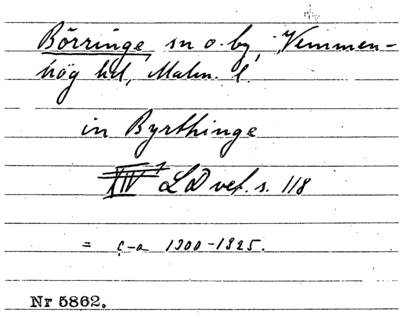 Börringe, sn o. by, Vemmen-
hög hd, Malm. l.
in Byrthinge
XIV LD vet. s. 118
= c-a 1300-1325.
Nr 5862.